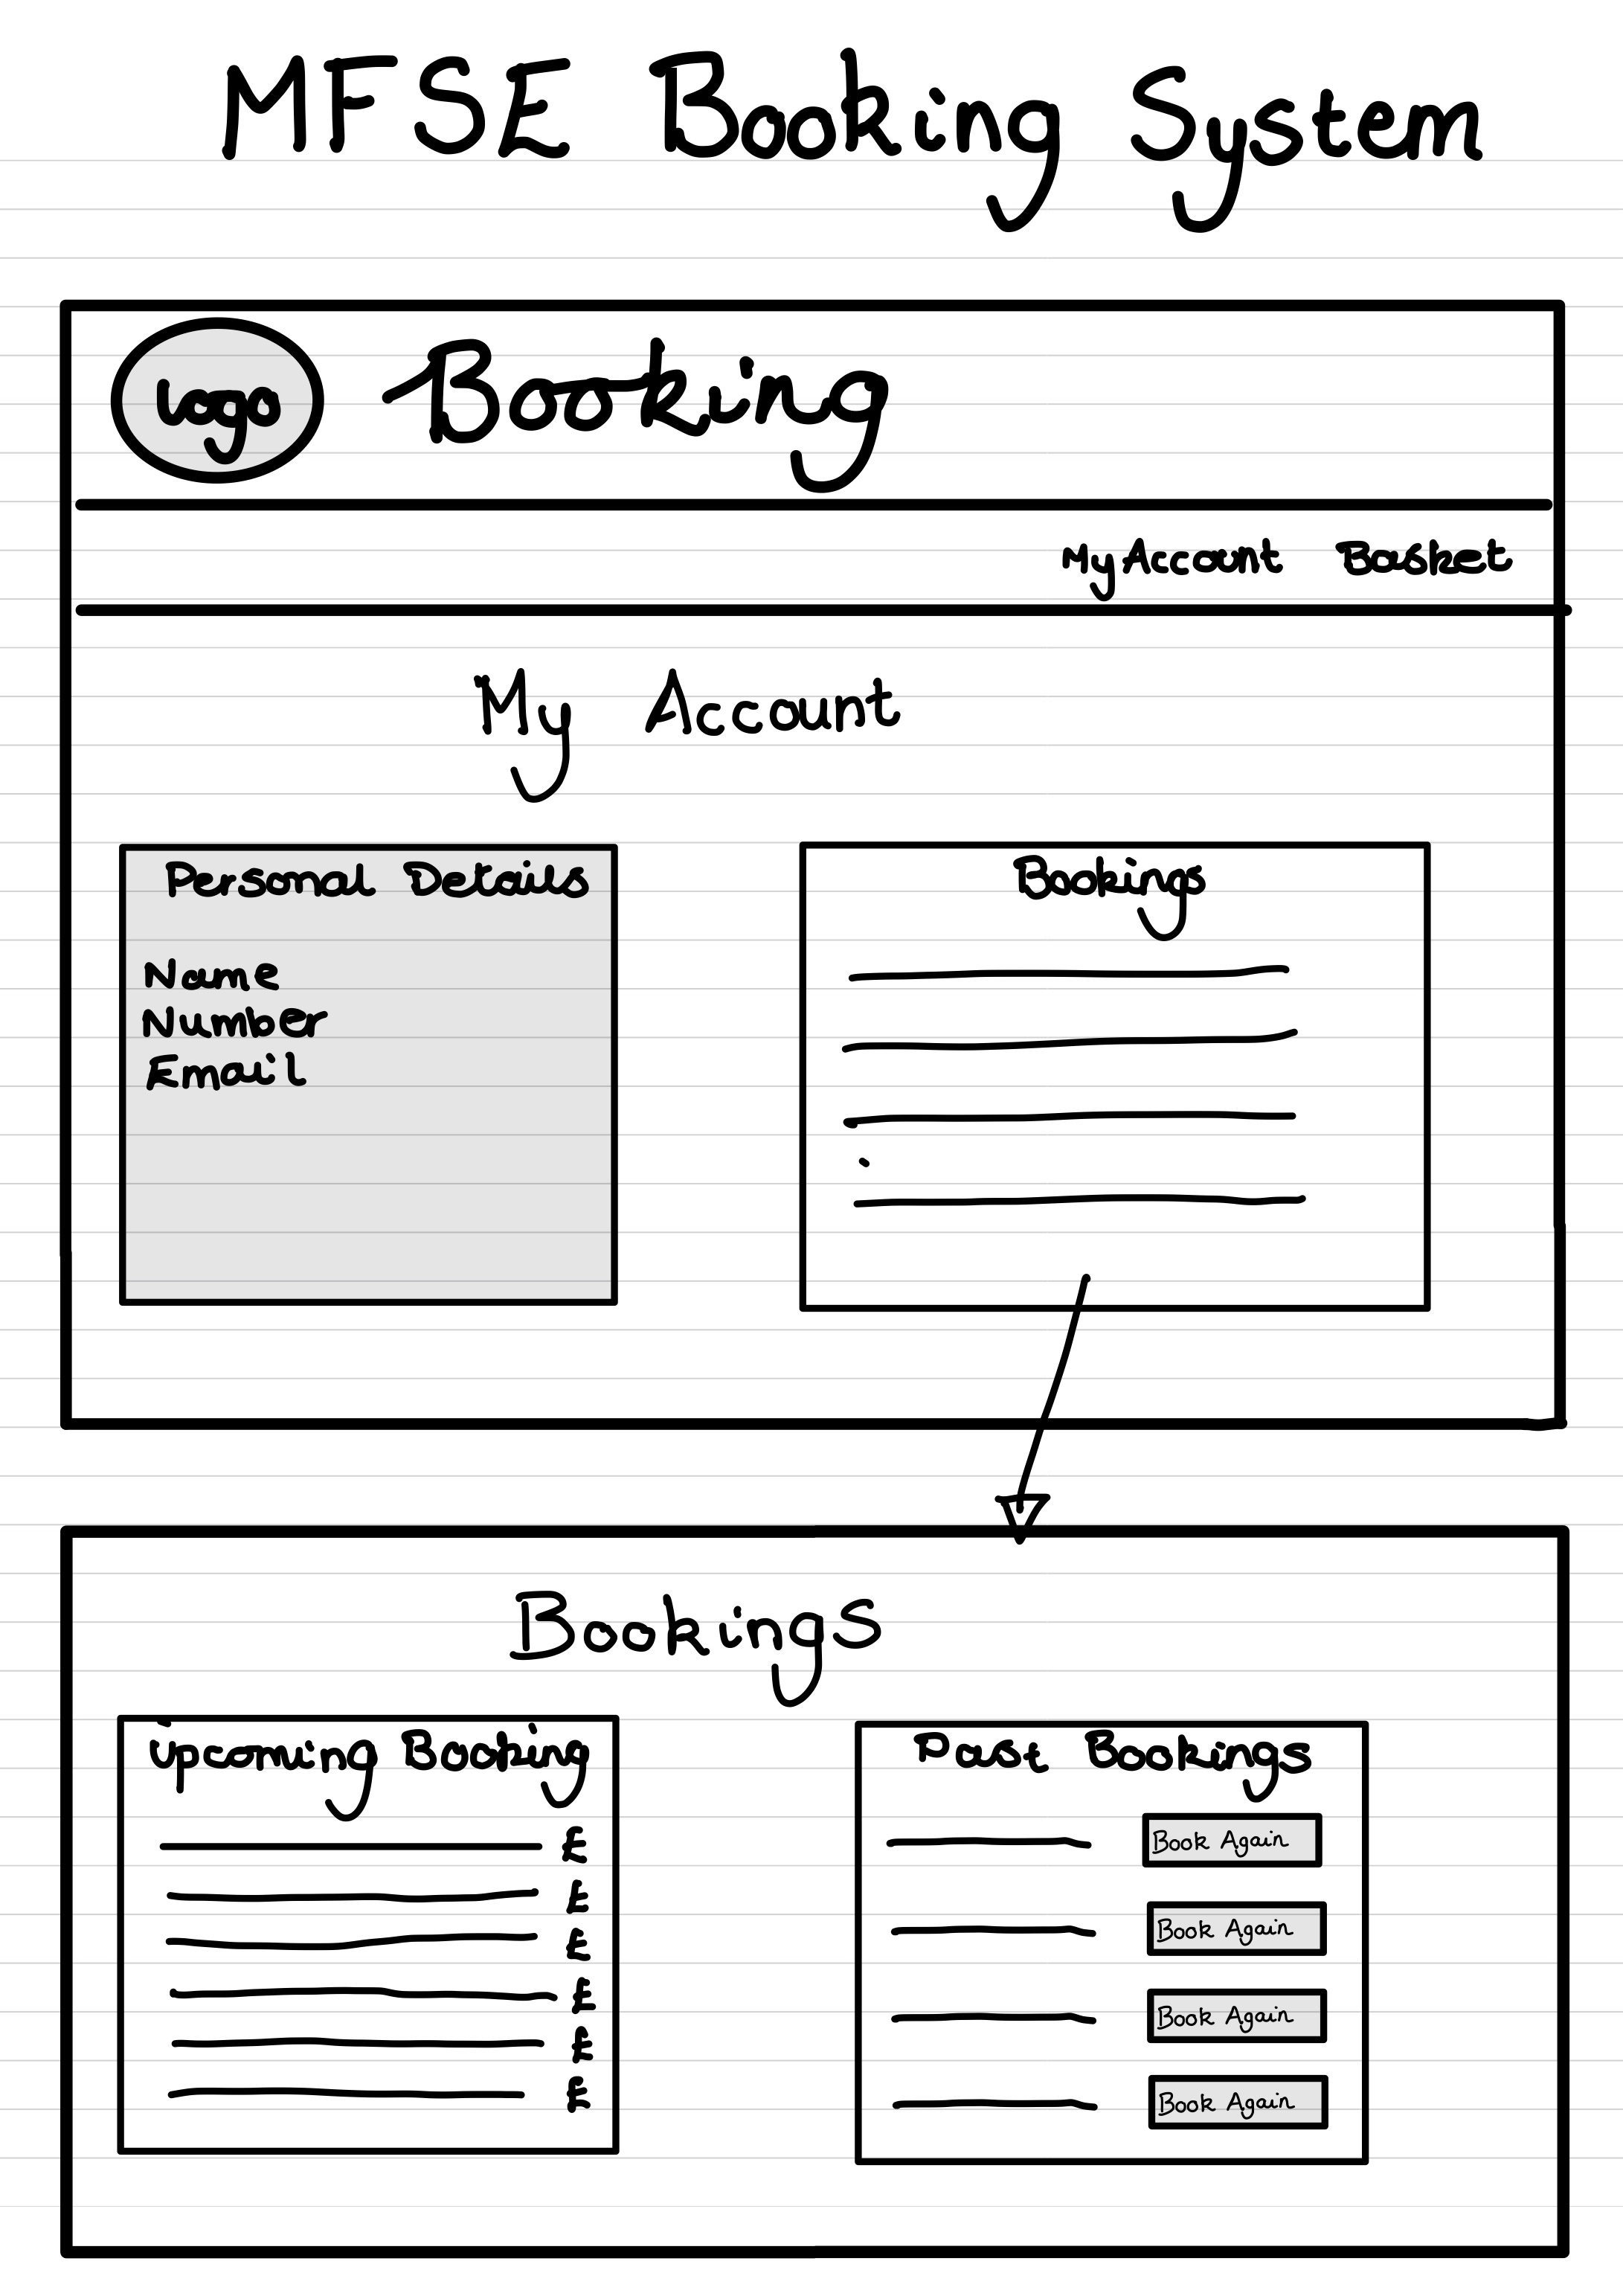 MFSE Booking System
Logo
Booking
My Account Basket
My Account
Personal Details
Name
Number
Email
Bookings
Bookings
Upcoming Booking
£
£
£
£
£
£
Past Bookings
Book Again
Book Again
Book Again
Book Again